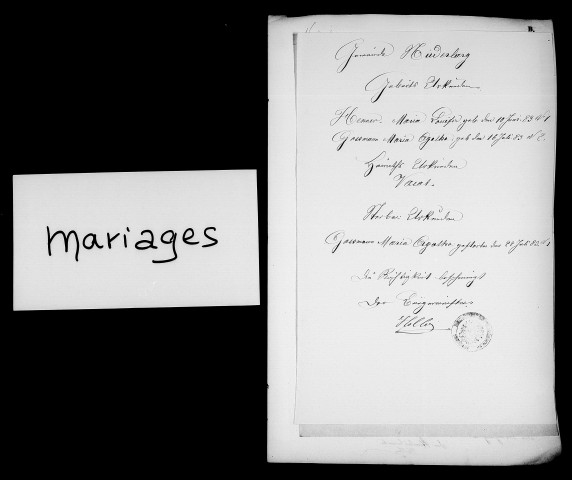 mariages
B.
Gemeinde Niederberg
Geburts Urkunden
Henner Maria geb. den 10 Juni 83 № 1
Gassmann Maria Agatha geb den 18 Juli 83 № 2.
Heiraths Urkunden
Vacat.
Sterbe Urkunden
Gassmann Maria Agatha, gestorben den 24 Juli 83 № 1
Die Richtigkeit bescheinigt
Der Bürgermeister